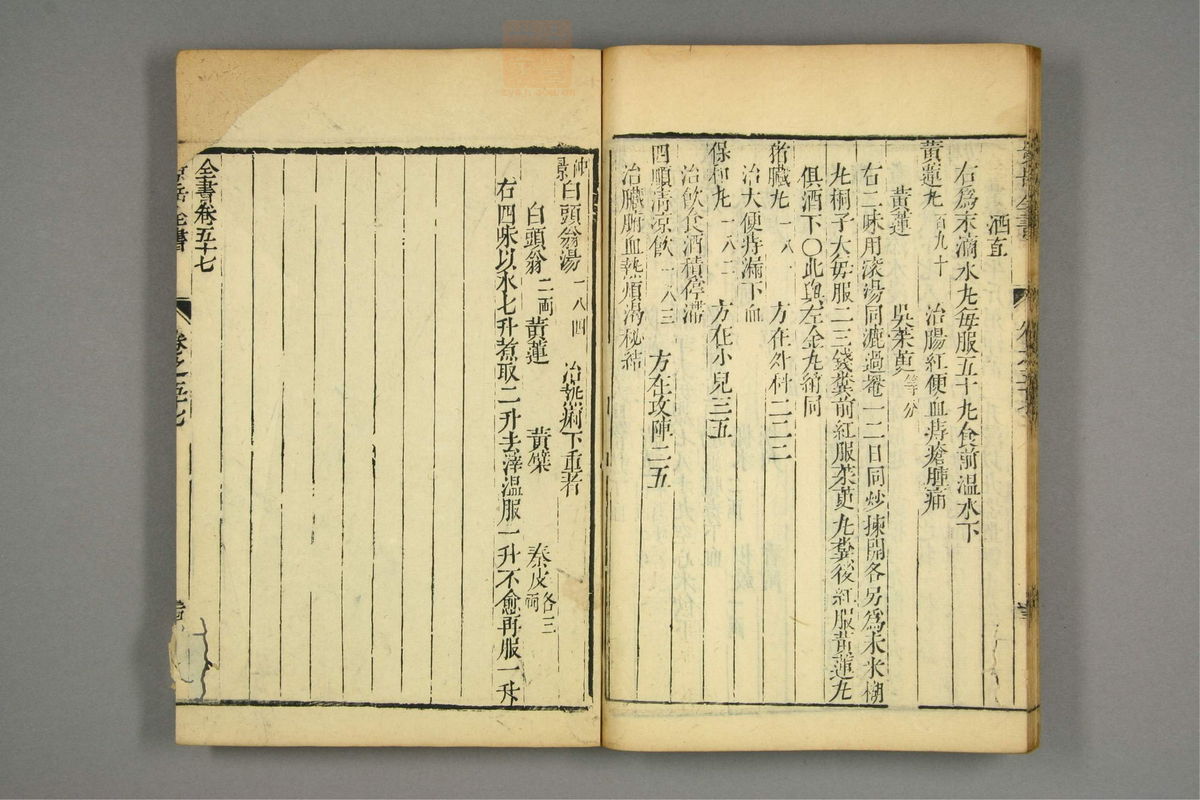 景岳全書
酒直
右爲末滴水丸每服五十丸食前溫水下
黃蓮丸 百九十 治腸紅便血痔瘡腫痛
黃蓮 吳茱萸 等分
右二味用滚湯同漉過罨一二日同炒揀開各另爲末米糊
丸桐子大每服二三錢糞前紅服茱萸丸糞後紅服黃蓮丸
俱酒下○此與左金丸稍同
猪臟丸 一八一 方在外科二二二
治大便痔漏下血
保和丸 一八二 方在小兒三五
治飲食酒積停滯
四順清凉飲 一八三 方在攻陣二五
治臟腑血熱煩渴秘結
仲景白頭翁湯 一八四 治熱痢下重者
白頭翁 二兩 黃蓮 黃蘗 秦皮 各三兩
右四味以水七升煮取二升去滓溫服一升不愈再服一升
全書卷五十七
景岳全書 卷之五十七